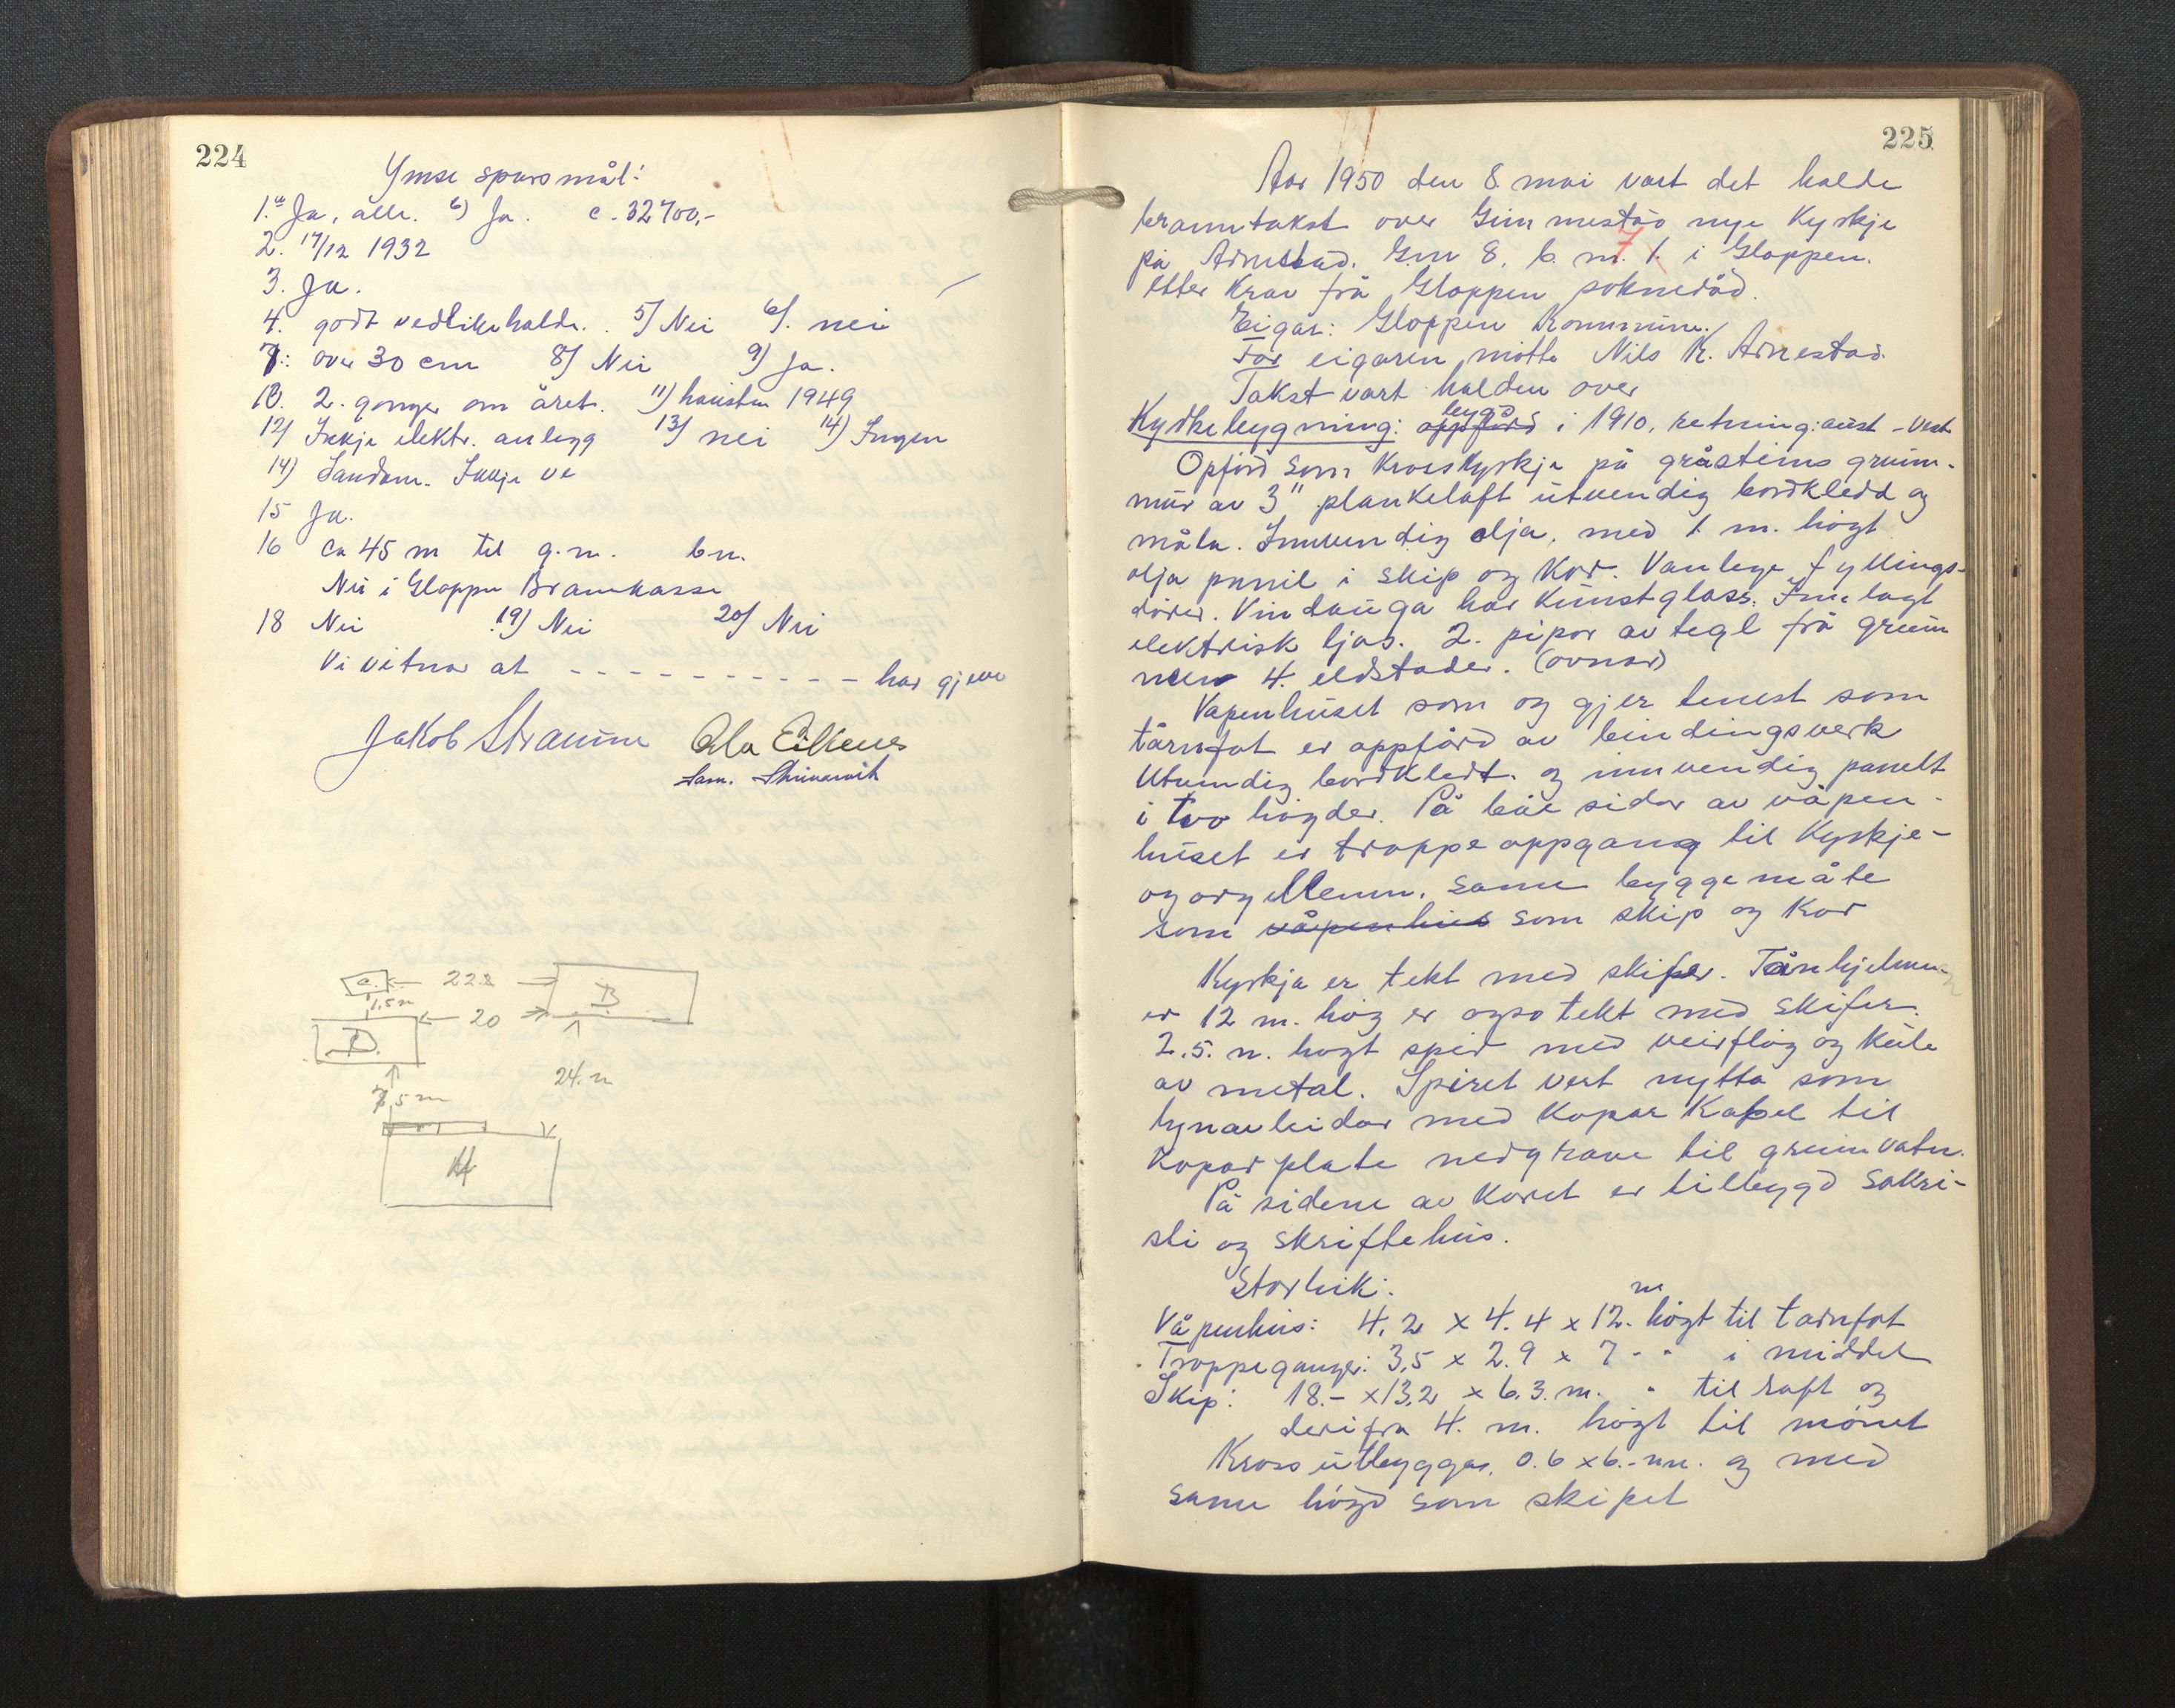 224
Ymse spørsmål:
1.a Ja, alle. b) Ja. c. 32700,-
2. 17/12 1932
3. Ja.
4. godt vedlikehalde. 5) Nei 6). nei
7: over 30 cm 8) Nei 9) Ja.
10. 2. gonger om året. 11) hausten 1949
12) Inkje elektr. anlegg 13) nei 14) Ingen
14) Sandam. Inkje ve
15 Ja.
16 ca 45 m til g.n. bn.
Nei i Gloppen Brannkasse
18 Nei 19) Nei 20) Nei
Vi vitnar at - - - - - - - - - - har gjeve
Jakob Straume Ola Eikenes
Sam.
C. 22.8 B
1,5 m
20
D.
7,5 m 24. m
H
225
Aar 1950 den 8. mai vart det halde
branntakst over Gimmestad nye Kyrkje
på Arnestad. Gm 8. b. nr. 1. 7 i Gloppen.
etter krav frå Gloppen sokneråd.
Eigar: Gloppen kommune.
For eigaren møtte Nils K. Arnestad.
Takst vart halden over
Kyrkebygning: oppførd bygd i 1910, retning: aust - vest
Opførd som Kroskyrkje på gråsteins grunn-
mur av 3" plankelaft utvendig bordkledd og
måla. Innvendig olja, med 1 m. høgt
olja panil i skip og Kor. Vanlege fyllings-
dører. Vindauga har Kunstglass. Innlagt
elektrisk ljos. 2. pipor av tegl frå grunn
men 4. eldstader. (ovnar)
Vapenhuset som og gjer tenest som
tårnfot er oppførd av bindingsverk
Utvendig bordkledt. og innvendig panelt
i tvo høgder. På båe sidor av våpen-
huset er troppeoppgang til Kyrkje-
og orgellemm. same byggemåte
som våpenhus som skip og Kor
Kyrkja er tekt med skifer. Tårnhjelmen
er 12 m. høg er ogso tekt med skifer.
2.5. m. høgt spir med veirfløg og Kule
av metal. Spiret vert nytta som
lynavleidar med Kopar Kabel til
Koparplate nedgrave til grunnvatn.
På sidene av Koret er tilbygd sakri-
sti og skriftehus.
Storleik:
Våpenhus: 4,2 x 4.4 x 12. m høgt til tårnfot
Troppeganger: 3,5 x 2.9 x 7 - " i middel
Skip: 18.- x 13,2 x 6.3. m. " til raft og
derifra 4. m. høgt til mønet
Kross utbyggas. 0.6 x 6.- m. og med
same høgd som skipet